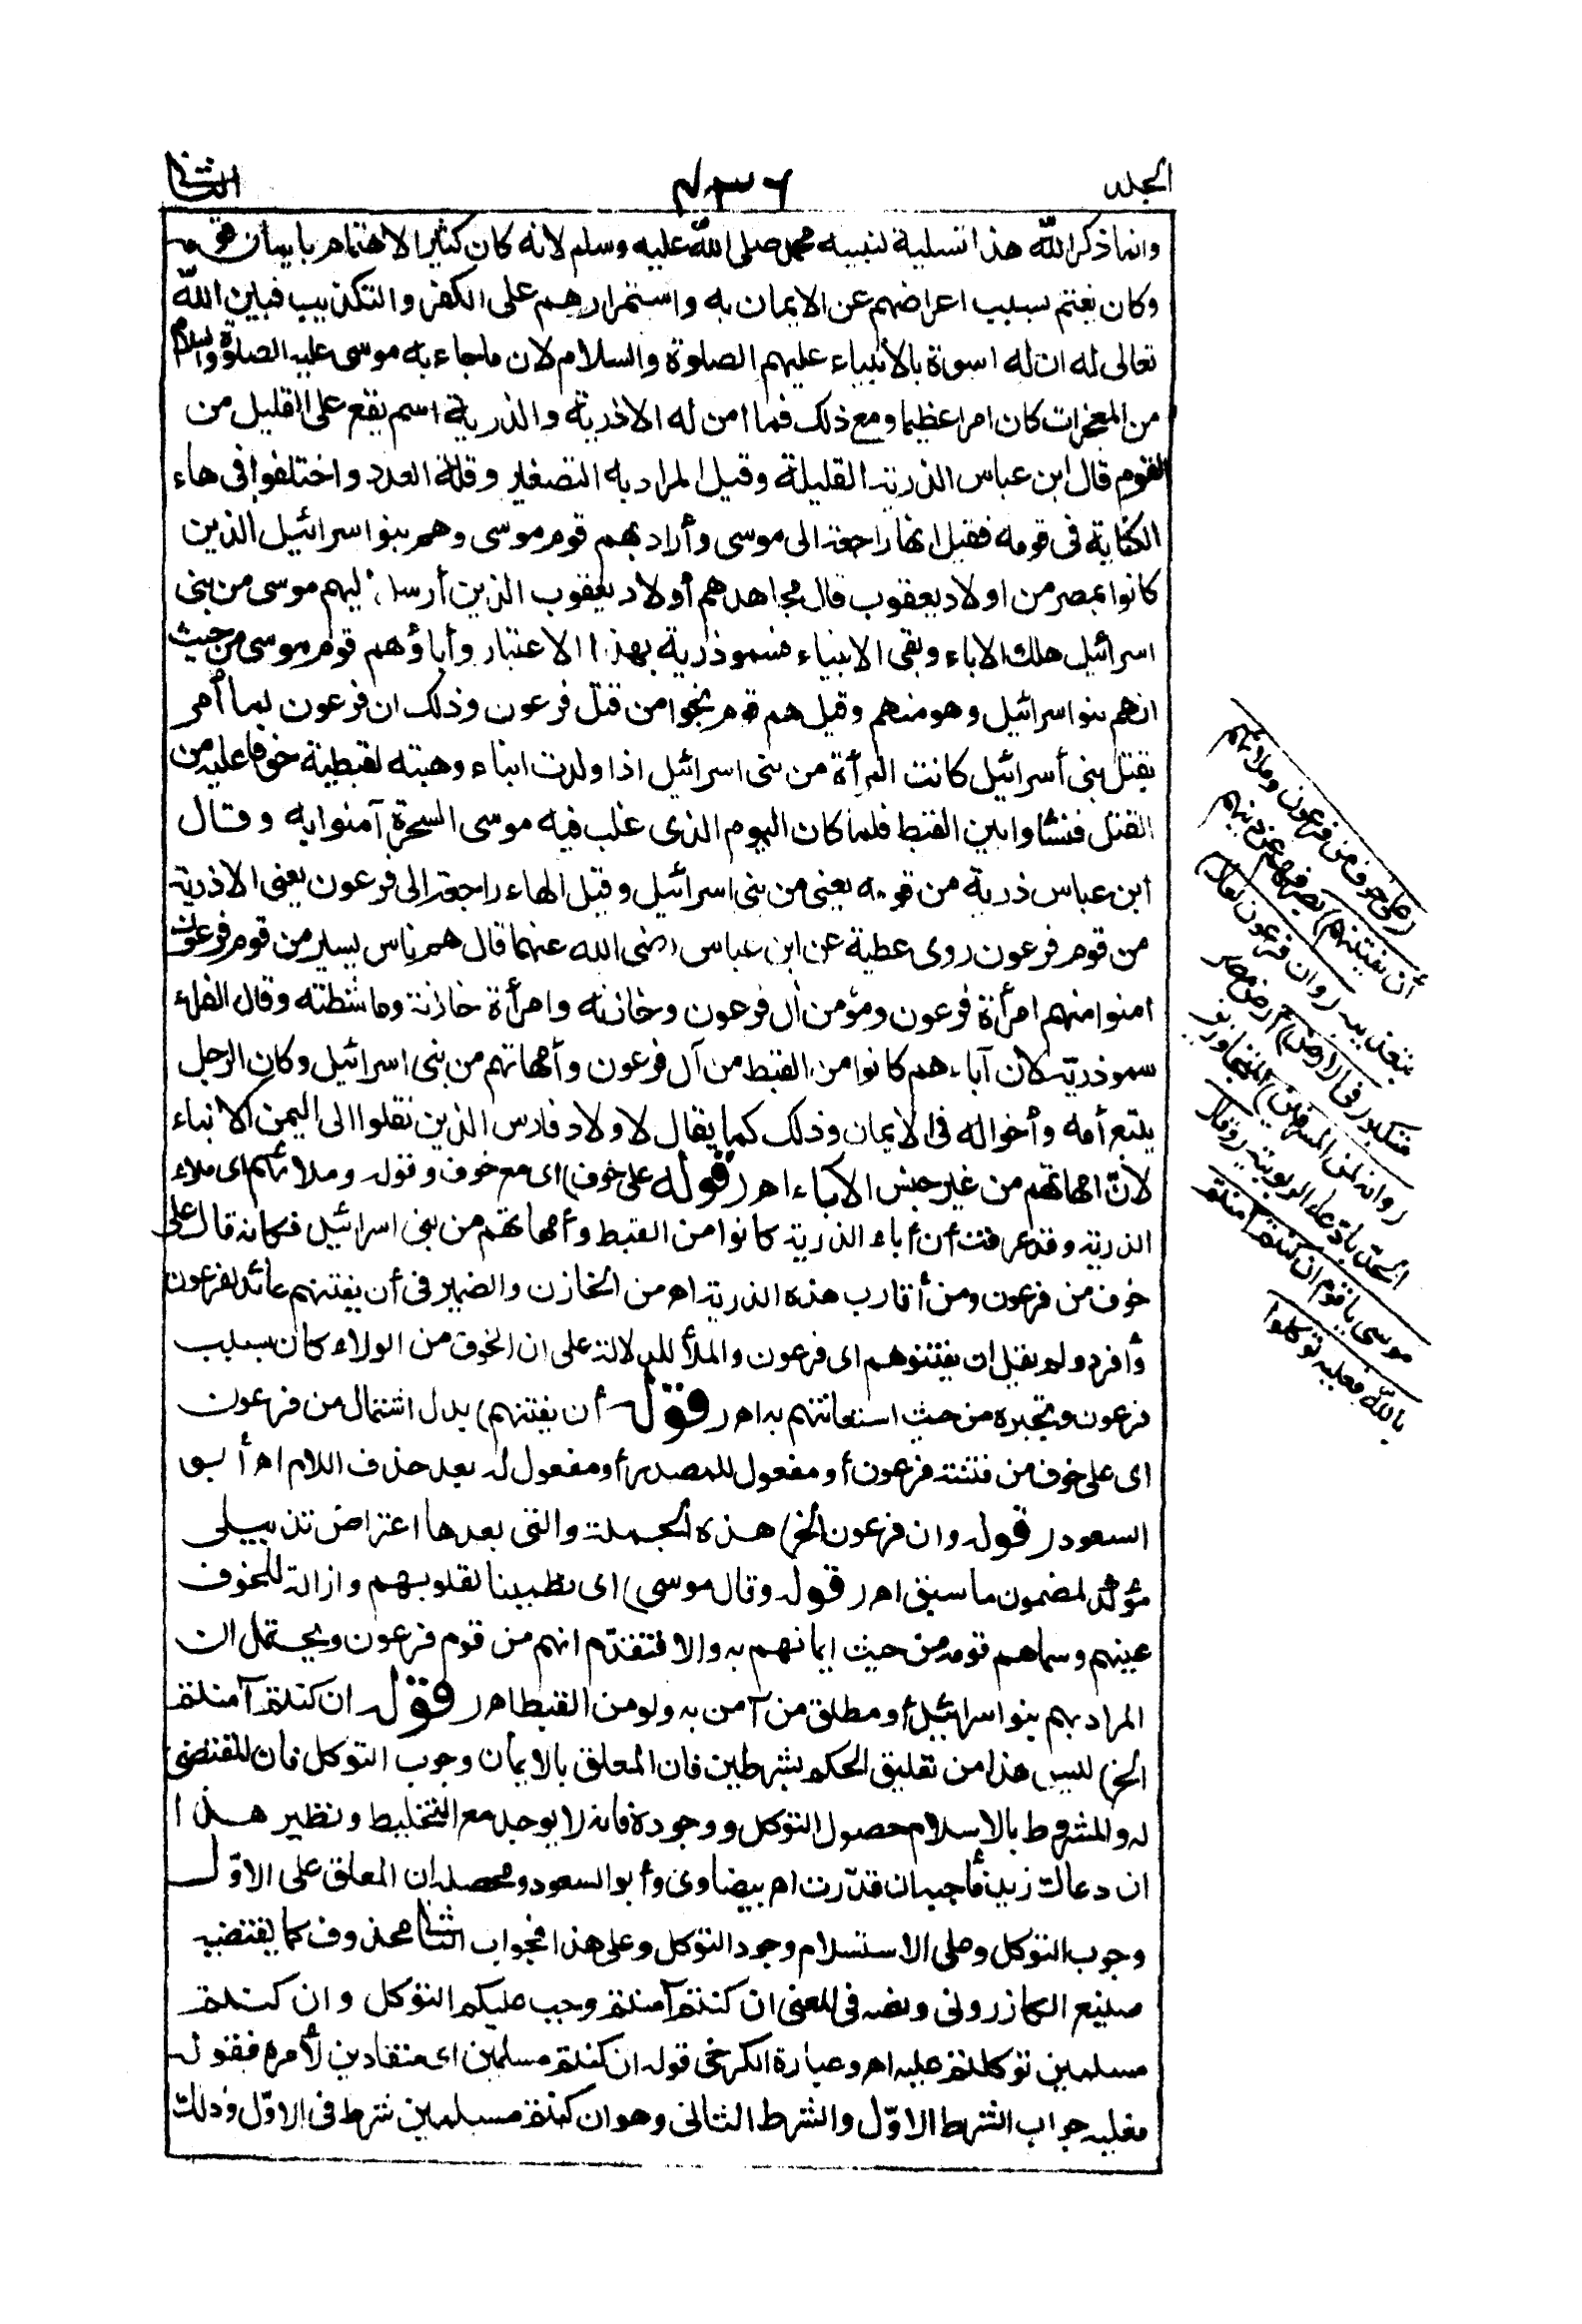 الجلد
٤٣٦
الثانى
وانما ذكر الله هذا تسلية لنبيه محمد صلى الله عليه وسلم لانه كان كثير الاهتمام بايمان قومه
وكان يغتم بسبب اعراضهم عن الايمان به واستمرارهم على الكفر والتكذيب فبين الله
تعالى له ان له اسوة بالأنبياء عليهم الصلوة والسلام لان ما جاء به موسى عليه الصلوة والسلام
من المعجزات كان امرا عظيما ومع ذلك فما امن له الا ذرية والذرية اسم يقع على القليل من
القوم قال ابن عباس الذرية القليلة وقيل المراد به التصغير وقلة العدد واختلفوا فى هاء
الكناية فى قومه فقيل انها راجعة الى موسى وأراد بهم قوم موسى وهم بنوا سرائيل الذين
كانوا بمصر من اولاد يعقوب قال مجاهد هم أولاد يعقوب الذين أرسل اليهم موسى من بنى
اسرائيل هلك الاباء وبقى الابنياء فسموذرية بهذا الاعتبار وأباؤهم قوم موسى من حيث
انهم بنوا سرائيل وهو منهم وقيل هم قوم نجوا من قتل فرعون وذلك ان فرعون لما أمر
بقتل بنى أسرائيل كانت المرأة من بنى اسرائيل اذا ولدت ابناء وهبته لقبطية خوفا عليه من
القتل فنشاوا بين القبط فلما كان اليوم الذى غلب فيه موسى السحرة آمنوابه وقال
ابن عباس ذرية من قومه يعنى من بنى اسرائيل وقيل الهاء راجعة الى فرعون يعنى الا ذرية
من قوم فرعون روى عطية عن ابن عباس رضى الله عنهما قال هم ناس يسير من قوم فرعون
امنوا منهم امرأة فرعون ومؤمن أل فرعون وخازنه وامرأة خازنة وماشطته وقال الفراء
سموذرية لان آباءهم كانوا من القبط من آل فرعون وأمهاتهم من بنى اسرائيل وكان الرجل
يتبع أمه وأخواله فى الايمان وذلك كما يقال لاولاد فارس الذين نقلوا الى اليمن الابناء
لانّ امهاتهم من غير جنس الآباء اهـ (قوله على خوف) اى مع خوف وقوله وملائهم اى ملاء
الذرية وقد عرفت أن أباء الذرية كانوا من القبط وأمهاتهم من بنى اسرائيل فكانه قال على
خوف من فرعون ومن أقارب هذه الذرية اهـ من الخازن والضمير فى أن يفتنهم عائد لفرعون
وأفرد ولم يقل ان يفتنوهم اى فرعون والملأ للدلالة على ان الخوف من الولاء كان بسبب
فرعون وتجبره من حيث استعانتهم به اهـ (قوله أن يفتنهم) بدل اشتمال من فرعون
اى على خوف من فتنته فرعون أو مفعول للمصدر أو مفعول له بعد حذف اللام اهـ أ بو
السعود (قوله وان فرعون الخ) هذه الجملة والتى بعدها اعتراض تذييلى
مؤكد لمضمون ما سبق اهـ (قوله وقال موسى) اى تطمينا لقلوبهم وازالة للخوف
عينهم وسماهم قومه من حيث إيمانهم به والا فتقدّم انهم من قوم فرعون ويحتمل ان
المراد بهم بنو اسرائيل أو مطلق من آمن به ولو من القبط اهـ (قوله ان كنتم آمنتم
الخ) ليس هذا من تعليق الحكم بشرطين فان المعلق بالايمان وجوب التوكل فان للمقتضى
له والمشروط بالاسلام حصول التوكل ووجوده فانه لا يوجد مع التخليط ونظير هذا
ان دعاك زيد فأجبه ان قدّرت اهـ بيضاوى وأبو السعود ومحصله ان المعلق على الاوّل
وجوب التوكل وعلى الاستسلام وجود التوكل وعلى هذا فجواب الثانى محذوف كما يقتضيه
صنيع الكازرونى ونصه فى المعنى ان كنتم آمنتم وجب عليكم التوكل وان كنتم
مسلمين توكلتم عليه اهـ وعبارة الكرخى قوله ان كنتم مسلمين اى منقادين لأمره فقوله
فعليه جواب الشرط الاوّل والشرط الثانى وهو ان كنتم مسلمين شرط فى الاوّل وذلك
(على خوف من فرعون وملائهم
أن يفتنهم) يصرفهم عن دينهم
بتعذيبه (وان فرعون لعال)
متكبر (فى الارض) أرض مصر
(وانه لمن المسرفين) المتجاوزين
الحد بادعاء الربوبية (وقال
موسى يا قوم ان كنتم آمنتم
بالله فعليه توكلوا